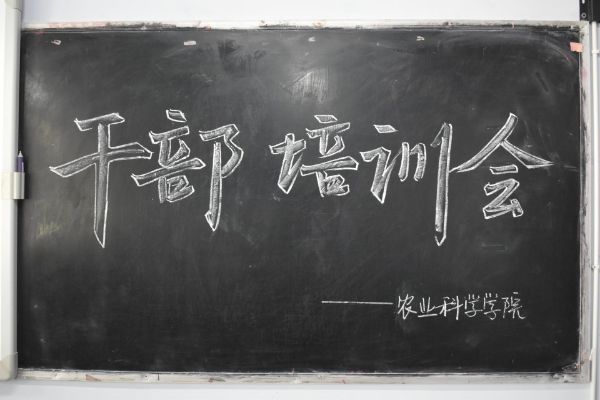 干部培训会
——农业科学学院